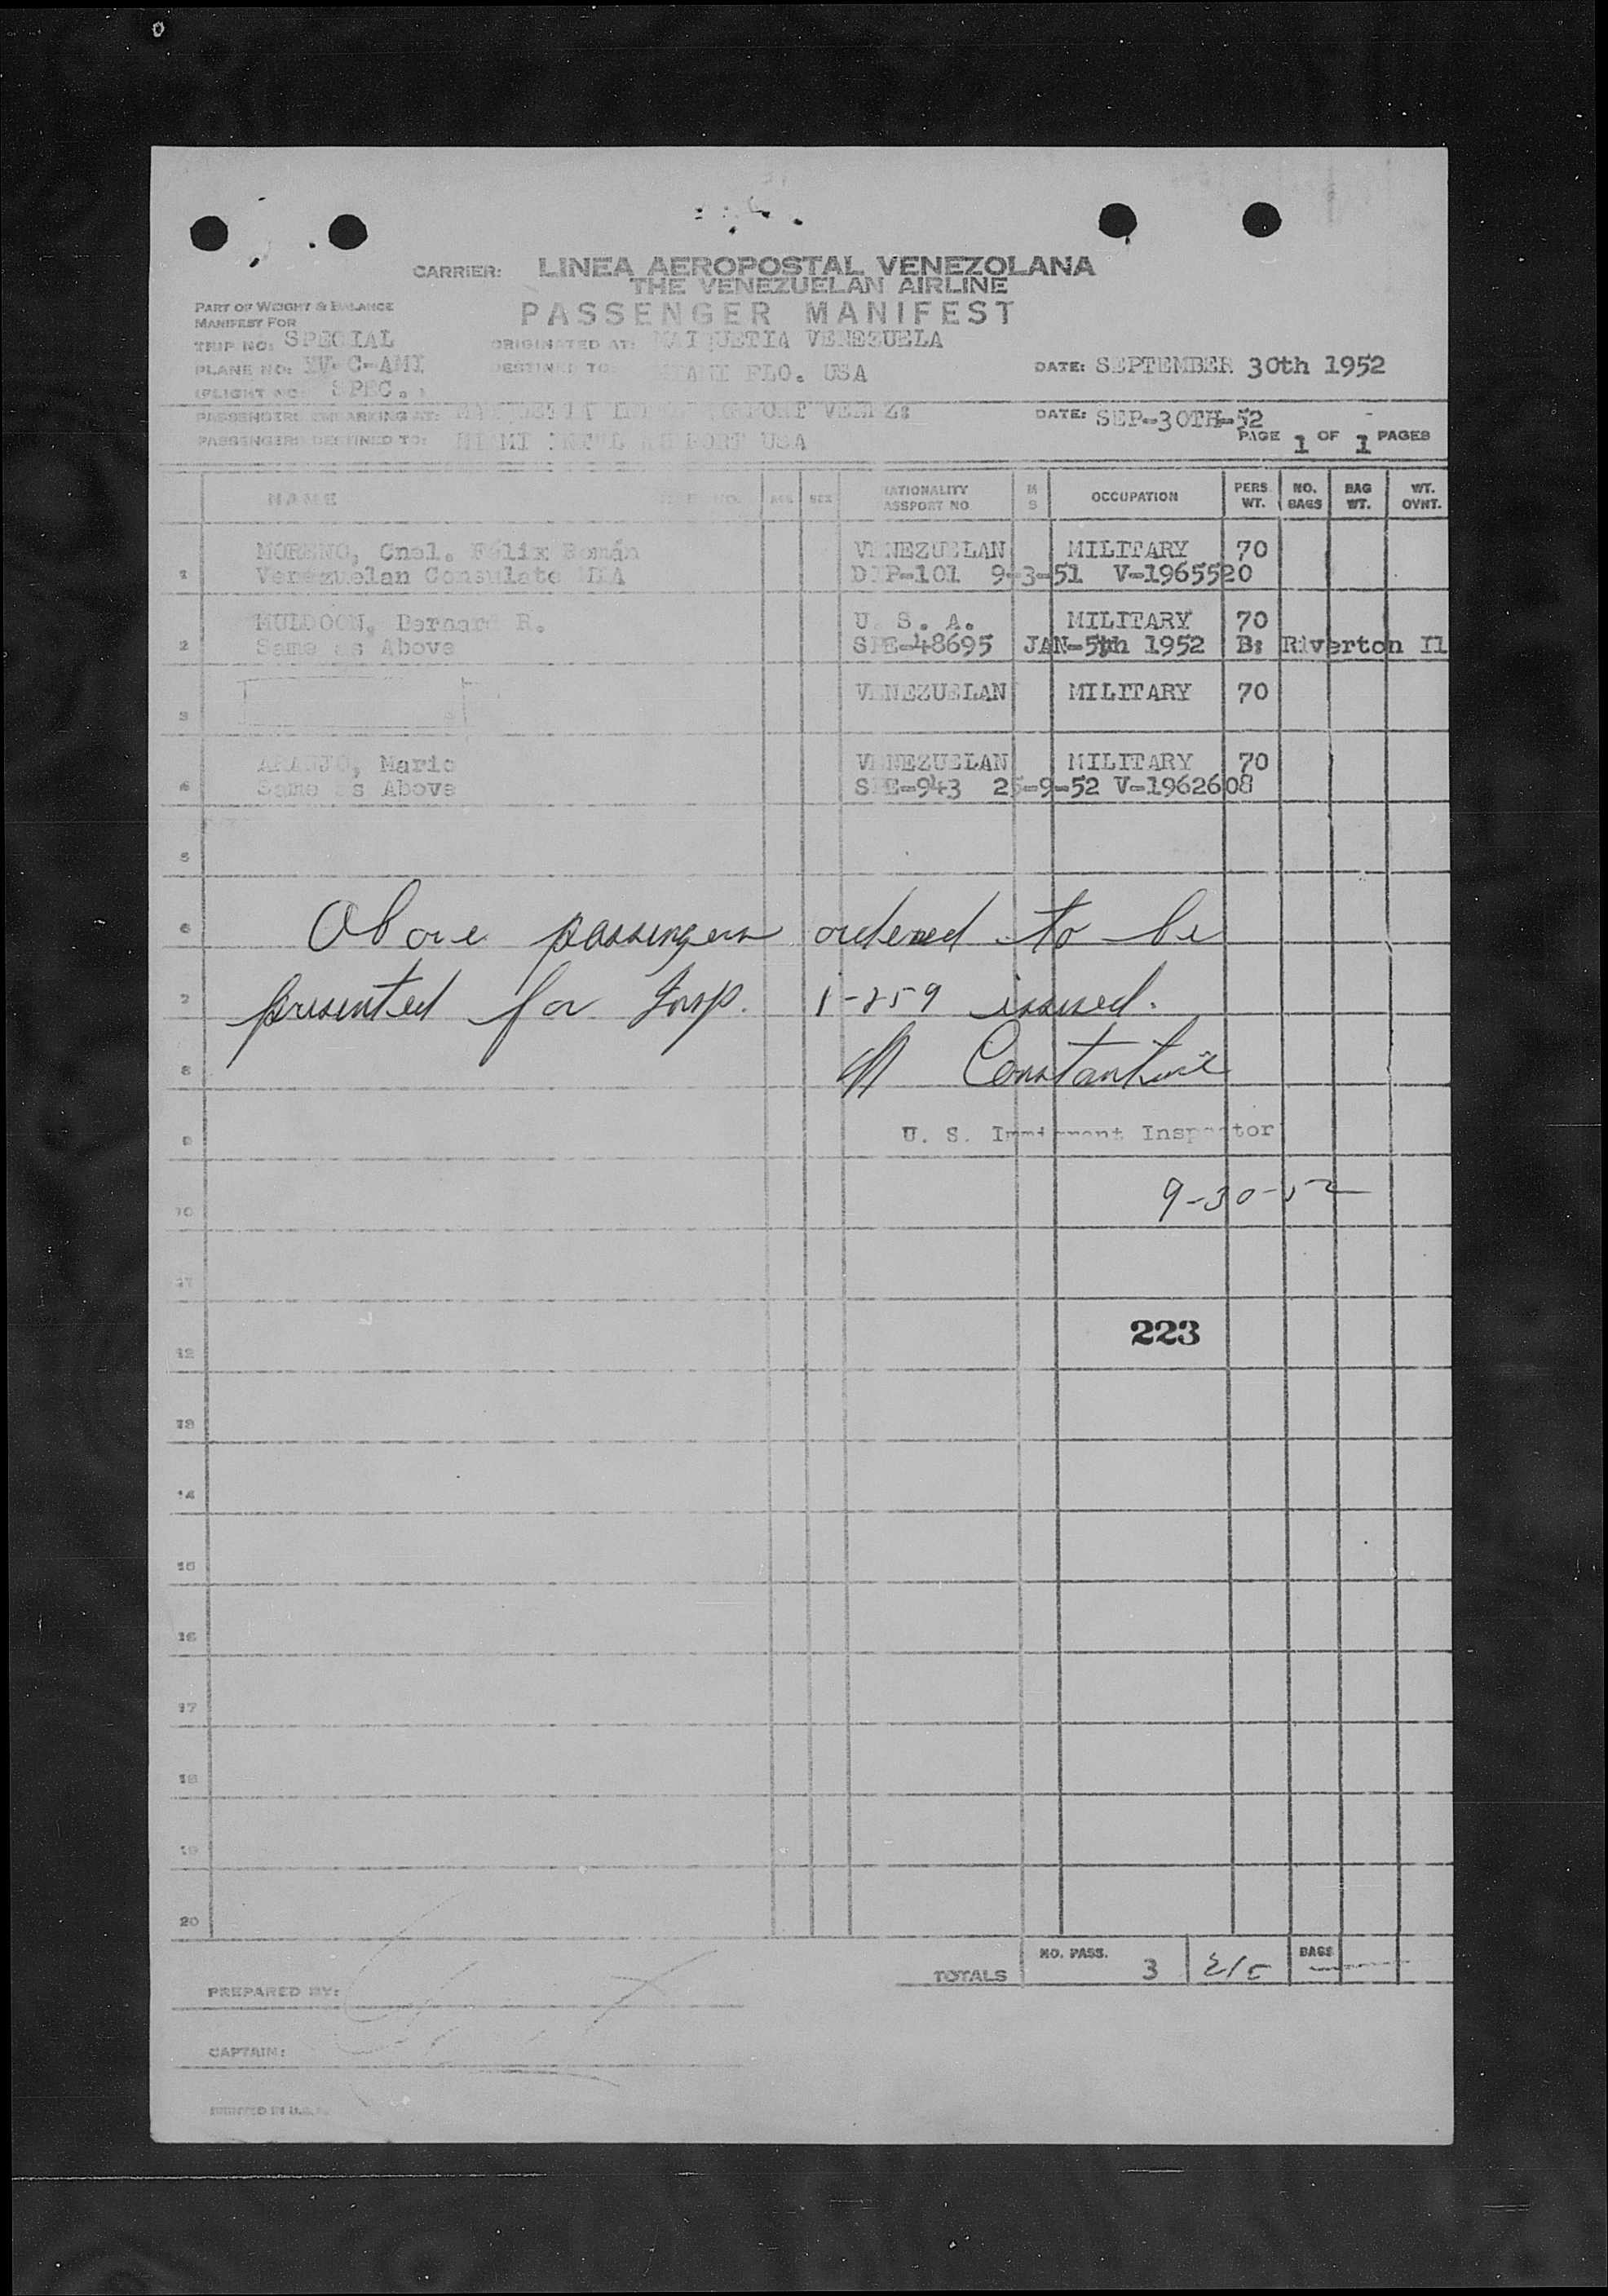 CARRIER: LINEA AEROPOSTAL VENEZOLANA
THE VENEZUELAN AIRLINE
PART OF WEIGHT & BALANCE
MANIFEST FOR
PASSENGER MANIFEST
TRIP NO: SPECIAL
ORIGINATED AT: MAIQUETIA VENEZUELA
PLANE NO: YV-C-AMI
DESTINED TO: MIAMI FLO. USA
DATE: SEPTEMBER 30th 1952
(FLIGHT NO: SPEC.)
PASSENGERS EMBARKING AT:
DATE: SEP-30TH-52
PASSENGERS DESTINED TO: MIAMI INT'L AIRPORT USA
PAGE 1 OF 1 PAGES
NAME AGE SEX NATIONALITY PASSPORT NO M S OCCUPATION PERS. WT. NO. BAGS BAG WT. WT. OVNT.
MORENO, Cnol. Félix Román VENEZUELAN MILITARY 70
1 Venezuelan Consulate MIA DIP-101 9-3-51 V-1965520
MULDOON, Bernard R. U. S. A. MILITARY 70
2 Same as Above SPE-48695 JAN-5th 1952 B: Riverton Il
VENEZUELAN MILITARY 70
3
ARAUJO, Mario VENEZUELAN MILITARY 70
4 Same as Above SPE-943 25-9-52 V-1962608
5
6 Above passengers ordered to be
7 presented for Insp. I-259 issued.
8 Constantine
9 U. S. Immigrant Inspector
10 9-30-52
11
12 223
13
14
15
16
17
18
19
20
TOTALS NO. PASS. 3 BAGS
PREPARED BY:
CAPTAIN:
PRINTED IN U.S.A.